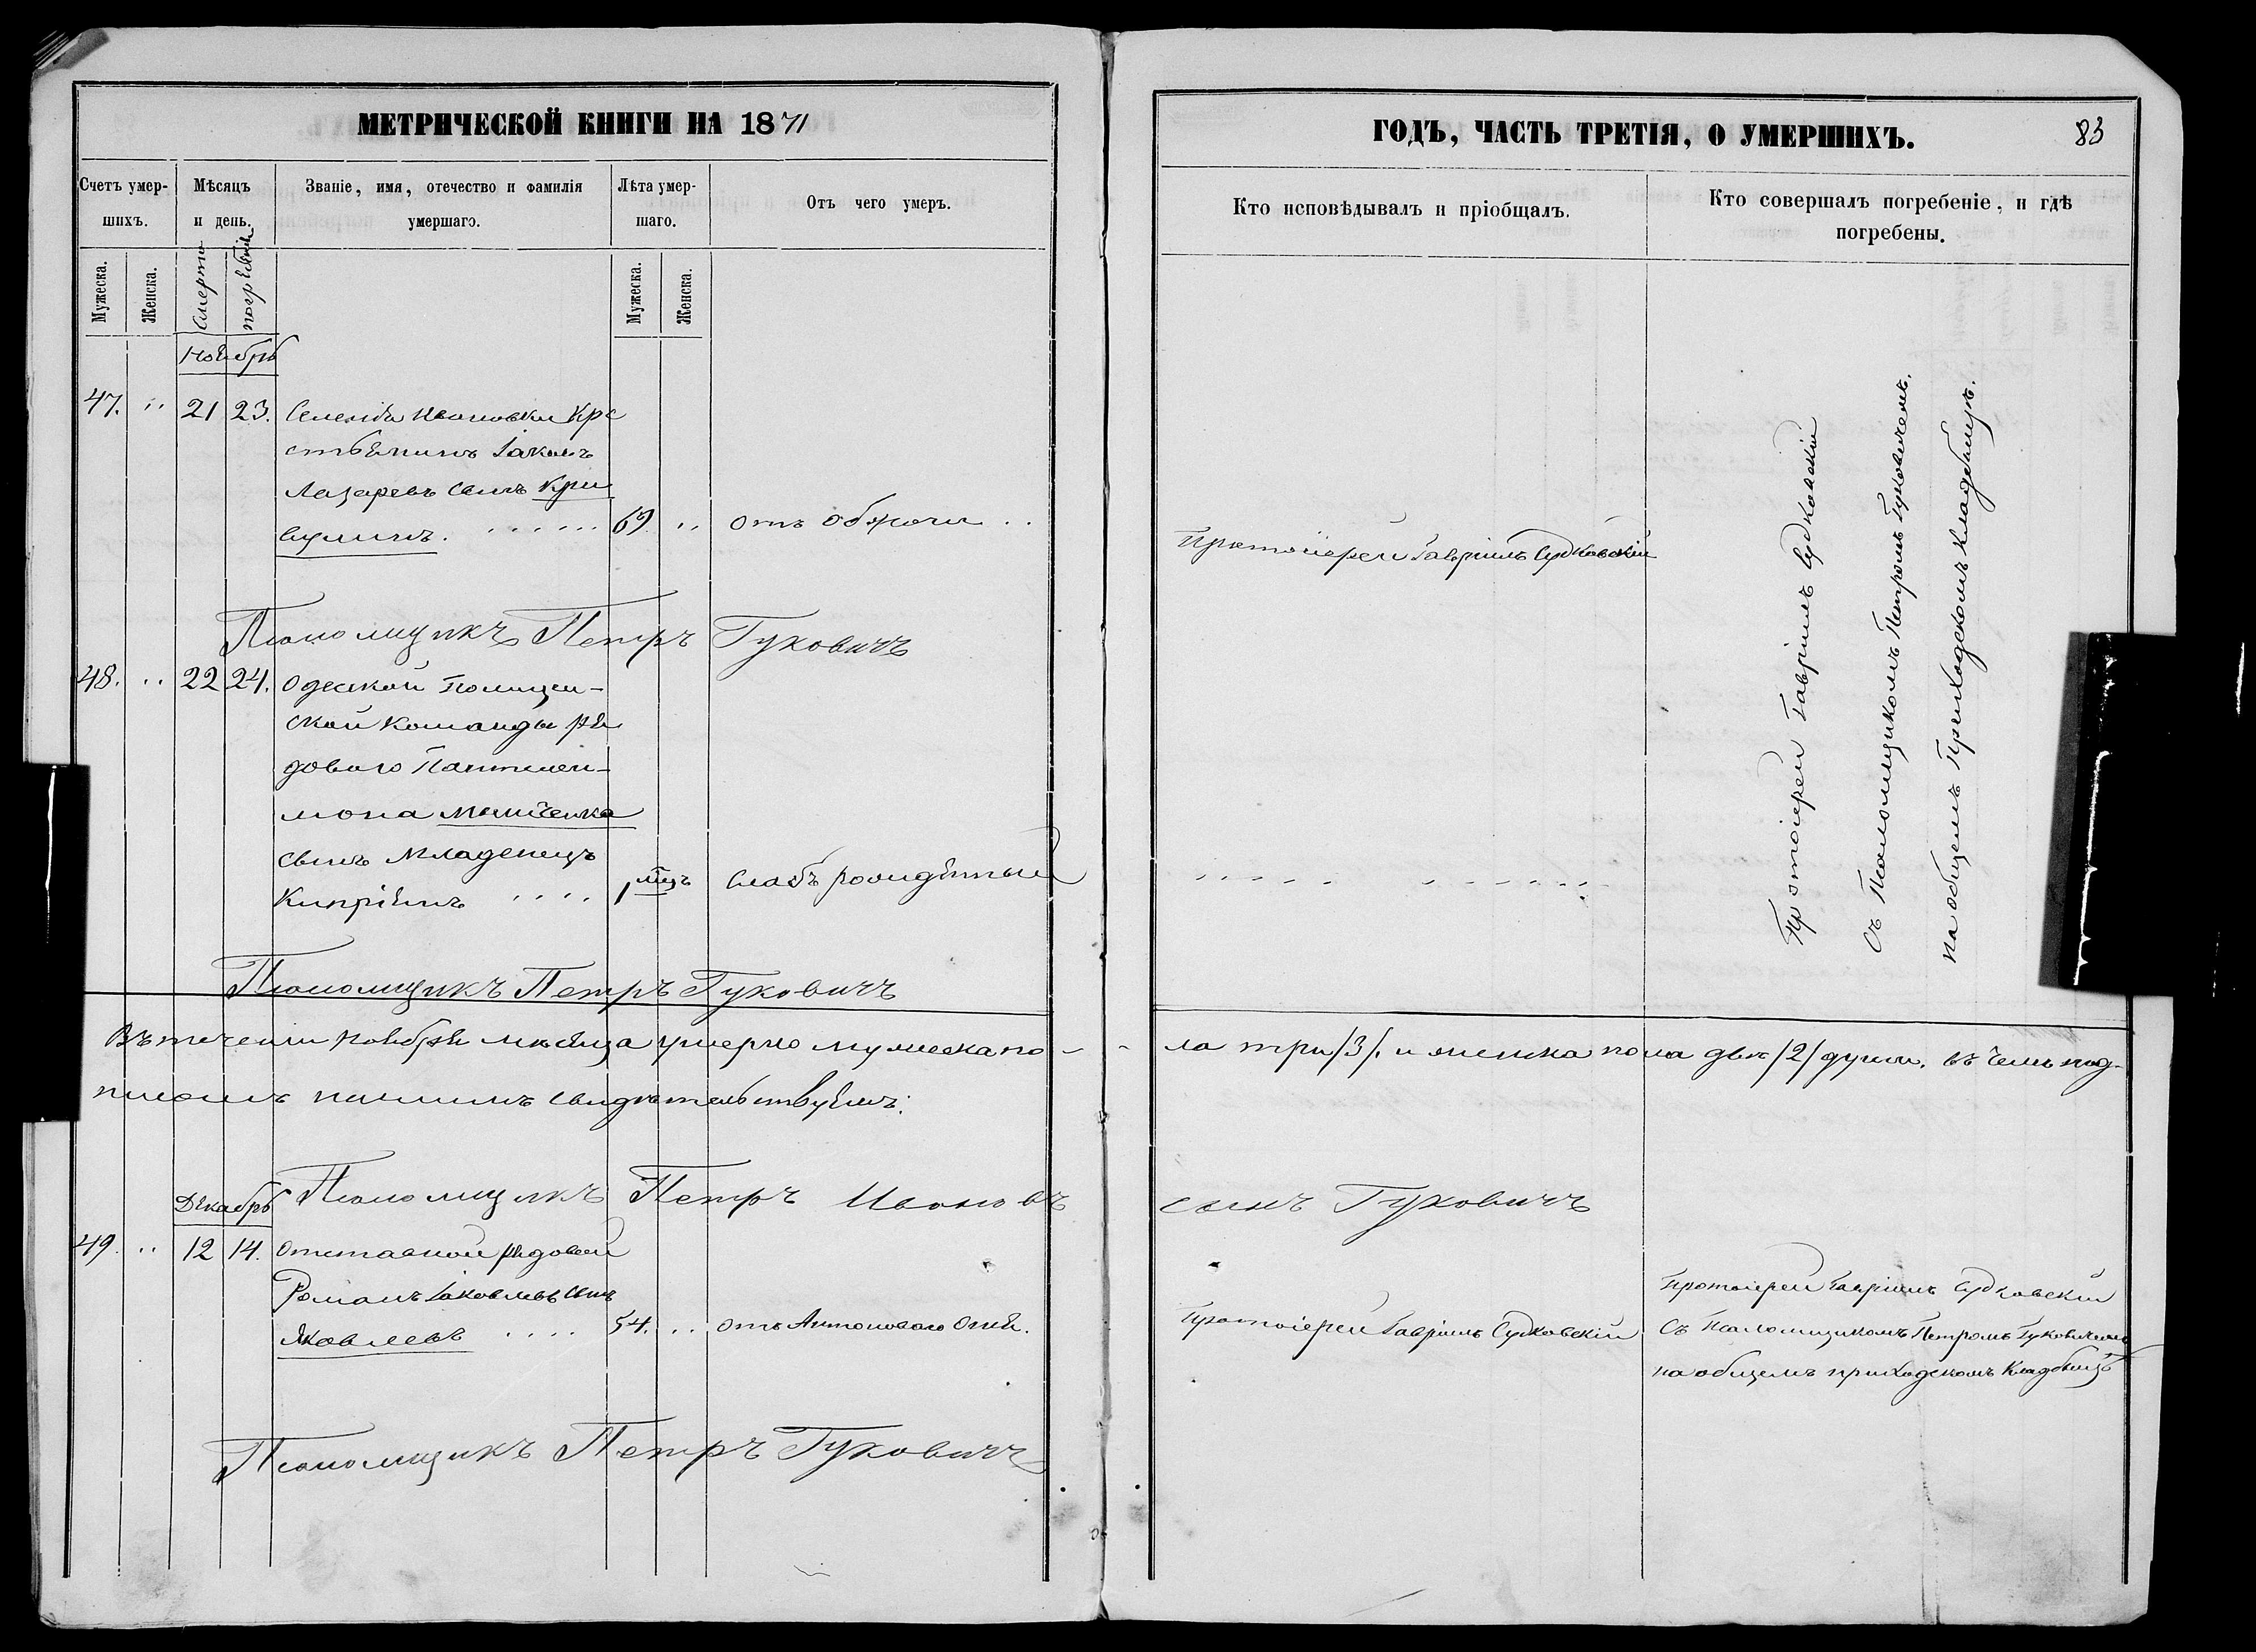 МЕТРИЧЕСКОЙ КНИГИ НА 1871
Счетъ умер-
шихъ.
Мѣсяцъ
и день.
Званіе, имя, отечество и фамилія
умершаго.
Лѣта умер-
шаго.
Отъ чего умеръ.
Мужеска.
Женска.
Смерти
погребенія
Мужеска.
Женска.
Ноябрь
47. " 21 23. Селенія Ивановки Кре
стьянинъ Іаковъ
Лазаревъ сынъ Кри
69. " отъ
Псаломщикъ Петръ Гуковичъ
48. " 22 24. Одесской Полицей-
ской Команды ря
дового Пантелеи-
мона
сынъ младенецъ
Кипріянъ 1 мцъ Слабъ рожденный
Псаломщикъ Петръ Гуковичъ
Въ теченіи ноября мѣсяца умерло мужеска по-
писомъ нашимъ свидѣтельствуемъ:
Псаломщикъ Петръ Ивановъ
Декабрь
49. " 12 14. Отставной рядовой
Романъ Іаковлевъ сынъ
Яковлевъ 54. " отъ Антонового Огня.
Псаломщикъ Петръ Гуковичъ
ГОДЪ, ЧАСТЬ ТРЕТІЯ, О УМЕРШИХЪ.
83
Кто исповѣдывалъ и пріобщалъ.
Кто совершалъ погребеніе, и гдѣ
погребены.
Протоіерей Гавріилъ Судковскій
Протоіерей Гавріилъ Судковскій
Съ Псаломщикомъ Петромъ Гуковичемъ.
на общемъ Приходскомъ Кладбищѣ.
- ла три /3/. и женска пола двѣ /2/ души. въ чемъ под-
сынъ Гуковичъ
Протоіерей Гавріилъ Судковскій
Протоіерей Гавріилъ Судковскій
Съ Псаломщикомъ Петромъ Гуковичемъ
на общемъ приходскомъ Кладбищѣ